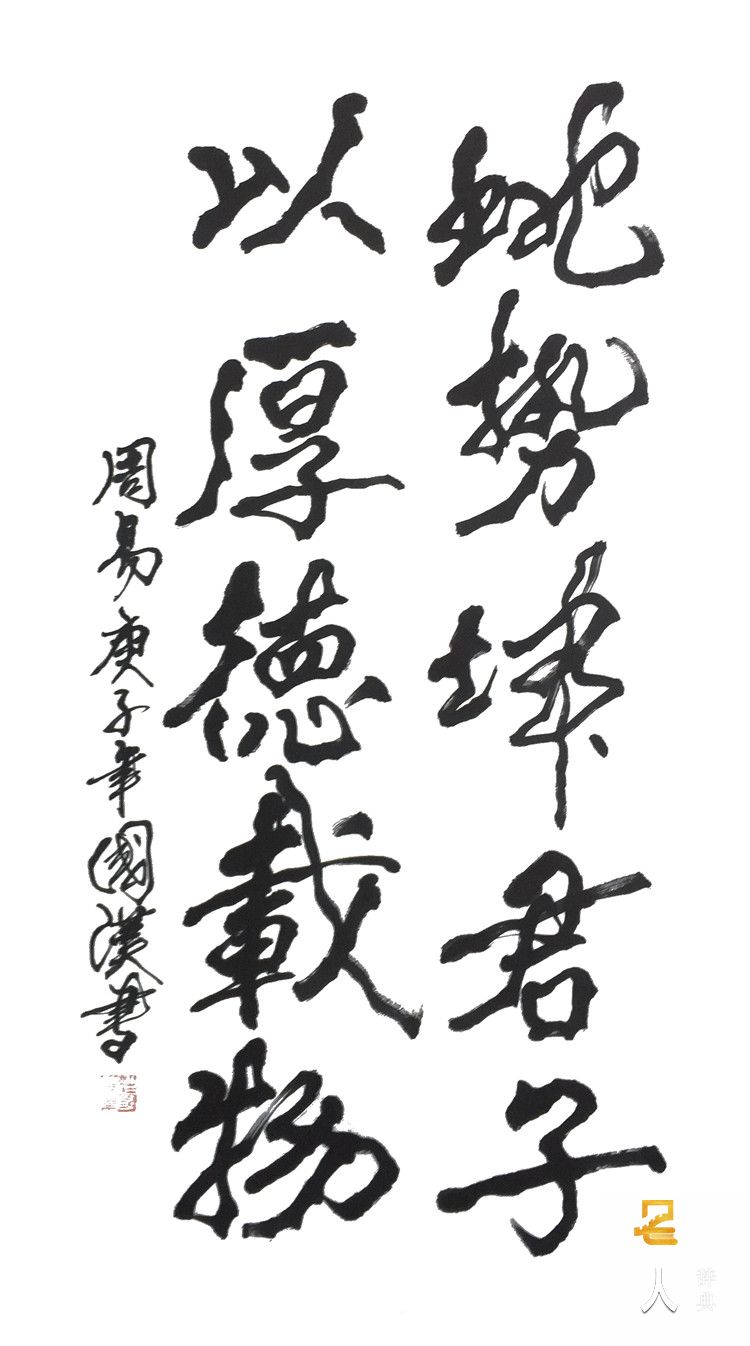 地勢坤君子
以厚德載物
周易庚子年國漢書
人
辞典